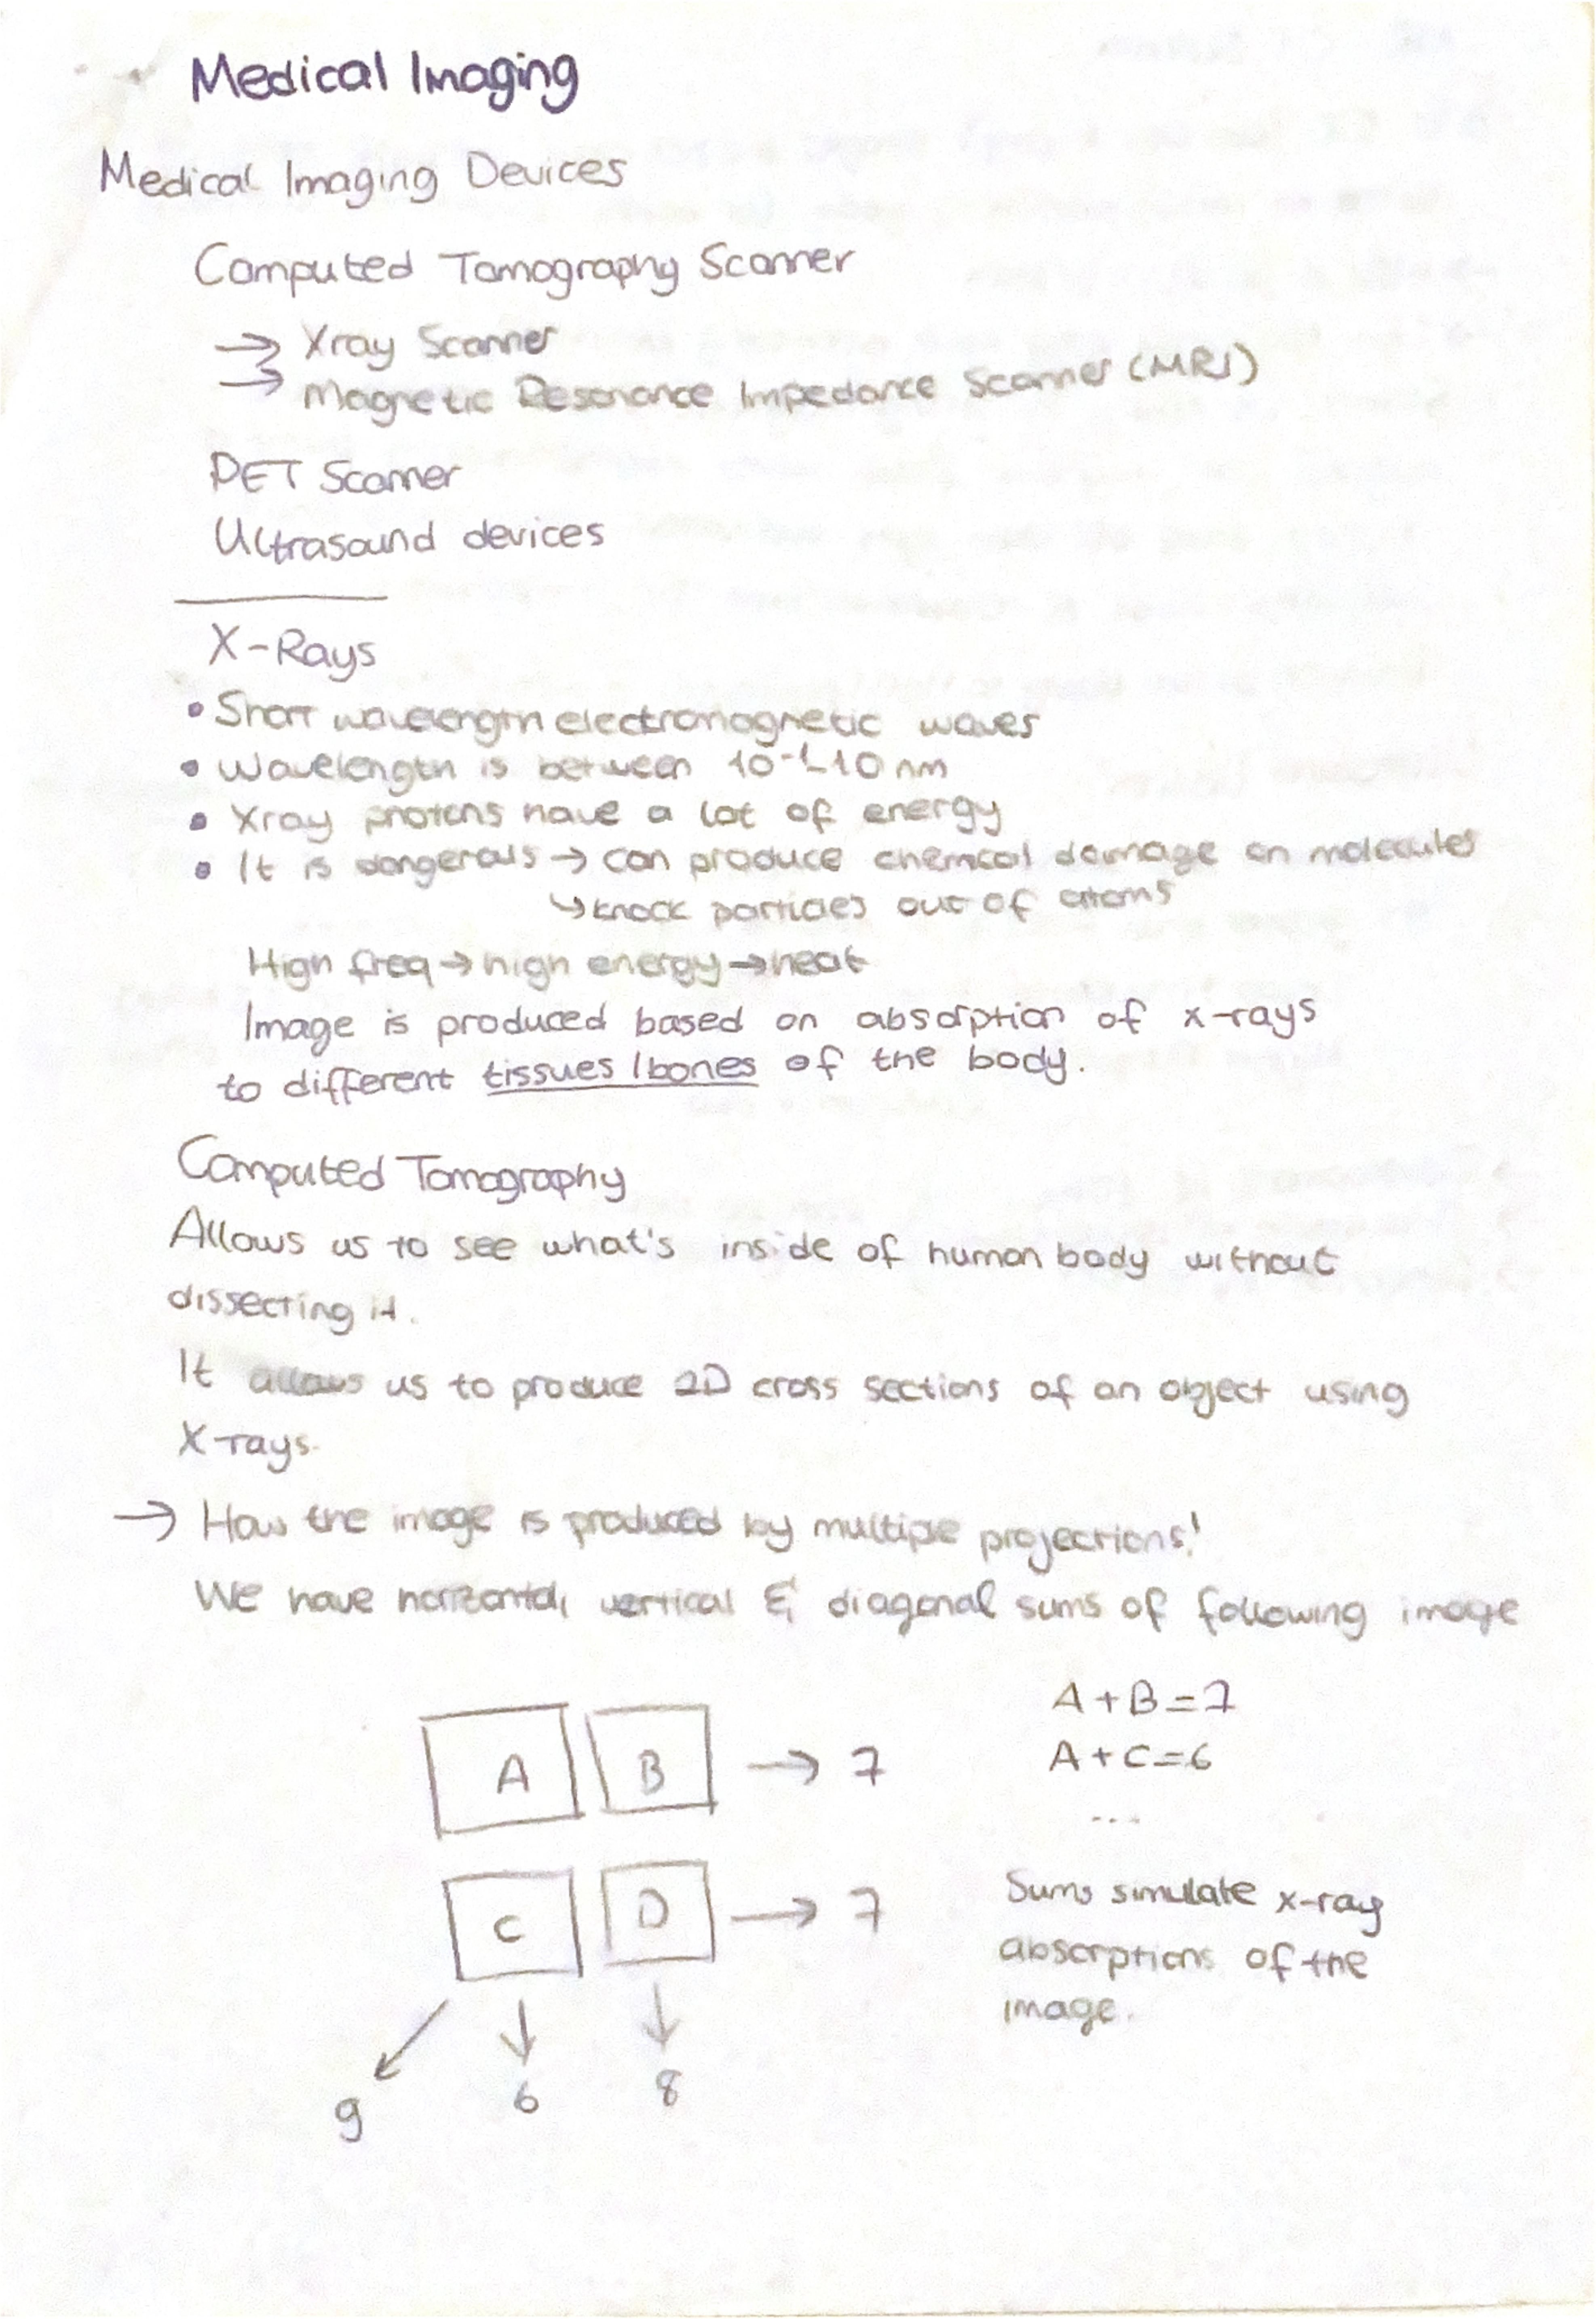 Medical Imaging
Medical Imaging Devices
Computed Tomography Scanner
→ Xray Scanner
→ Magnetic Resonance Impedance Scanner (MRI)
PET Scanner
Ultrasound devices
X-Rays
• Short wavelength electromagnetic waves
• Wavelength is between 10⁻¹-10 nm
• Xray photons have a lot of energy
• It is dangerous → can produce chemical damage on molecules
↳ knock particles out of atoms
High freq → high energy → heat
Image is produced based on absorption of x-rays
to different tissues / bones of the body.
Computed Tomography
Allows us to see what's inside of human body without
dissecting it.
It allows us to produce 2D cross sections of an object using
X-rays.
→ How the image is produced by multiple projections!
We have horizontal, vertical & diagonal sums of following image
A B → 7
A+B=7
A+C=6
...
C D → 7
Sums simulate x-ray
absorptions of the
image.
9 6 8